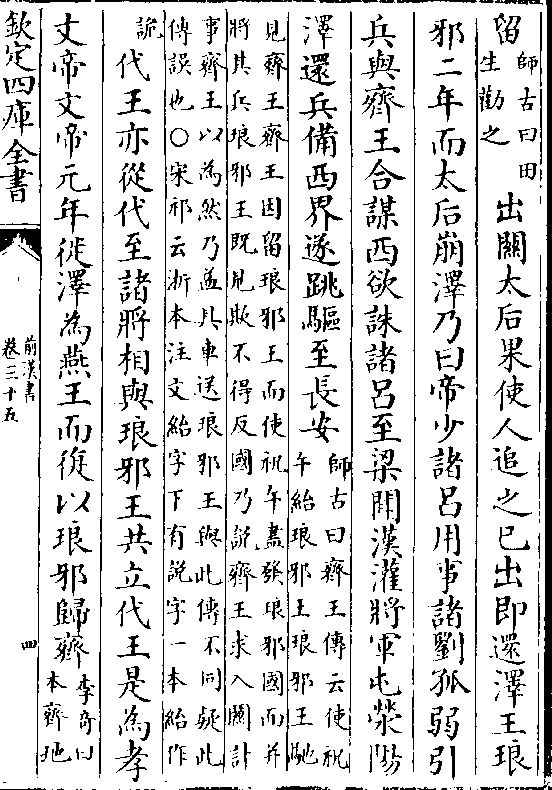 留師古曰田
生勸之
出關太后果使人追之已出即還澤王琅
邪二年而太后崩澤乃曰帝少諸呂用事諸劉孤弱引
兵與齊王合謀西欲誅諸呂至梁聞漢灌將軍屯滎陽
澤還兵備西界遂跳驅至長安師古曰齊王傳云使祝
午紿琅邪王琅邪王馳
見齊王齊王因留琅邪王而使祝午盡發琅邪國而并
將其兵琅邪王既見欺不得反國乃說齊王求入關計
事齊王以為然乃益具車送琅邪王與此傳不同疑此
傳誤也○宋祁云浙本注文紿字下有說字一本紿作
詭
代王亦從代至諸將相與琅邪王共立代王是為孝
文帝文帝元年徙澤為燕王而復以琅邪歸齊李奇曰
本齊地
欽定四庫全書
前漢書
卷三十五
四